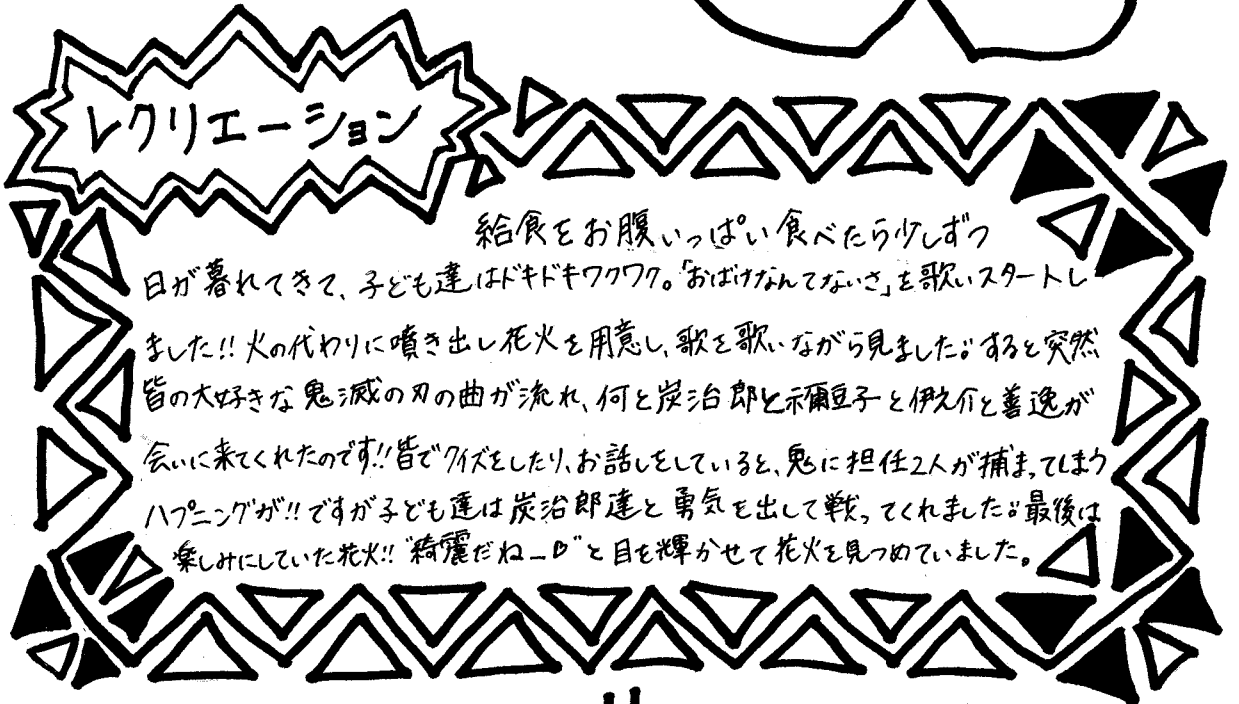 レクリエーション
給食をお腹いっぱい食べたら少しずつ
日が暮れてきて、子ども達はドキドキワクワク。「おばけなんてないさ」を歌いスタートし
ました!!火の代わりに噴き出し花火を用意し、歌を歌いながら見ました。すると突然
皆の大好きな鬼滅の刃の曲が流れ、何と炭治郎と禰豆子と伊之介と善逸が
会いに来てくれたのです!!皆でクイズをしたり、お話しをしていると、鬼に担任2人が捕まってしまう
ハプニングが!!ですが子ども達は炭治郎達と勇気を出して戦ってくれました。最後は
楽しみにしていた花火!!“綺麗だねー♡”と目を輝かせて花火を見つめていました。